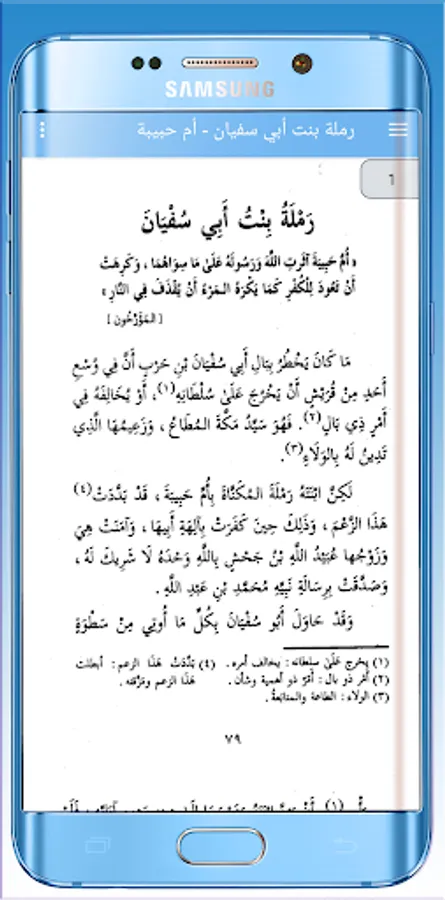 SAMSUNG
رملة بنت أبي سفيان - أم حبيبة
1
رَمْلَةُ بِنْتُ أَبِي سُفْيَانَ
« أُمُّ حَبِيبَةَ آثَرَتِ اللَّهَ وَرَسُولَهُ عَلَىٰ مَا سِوَاهُمَا ، وَكَرِهَتْ
أَنْ تَعُودَ لِلْكُفْرِ كَمَا يَكْرَهُ الْمَرْءُ أَنْ يُقْذَفَ فِي النَّارِ »
[ الْمُؤَرِّخُونَ ]
مَا كَانَ يَخْطُرُ بِبَالِ أَبِي سُفْيَانَ بْنِ حَرْبٍ أَنَّ فِي وُسْعِ
أَحَدٍ مِنْ قُرَيْشٍ أَنْ يَخْرُجَ عَلَىٰ سُلْطَانِهِ (١) ، أَوْ يُخَالِفَهُ فِي
أَمْرٍ ذِي بَالٍ (٢) . فَهُوَ سَيِّدُ مَكَّةَ الْمُطَاعُ ، وَزَعِيمُهَا الَّذِي
تَدِينُ لَهُ بِالْوَلَاءِ (٣) .
لَكِنَّ ابْنَتَهُ رَمْلَةَ الْمُكَنَّاةَ بِأُمِّ حَبِيبَةَ ، قَدْ بَدَّدَتْ (٤)
هَذَا الزَّعْمَ ، وَذَلِكَ حِينَ كَفَرَتْ بِآلِهَةِ أَبِيهَا ، وَآمَنَتْ هِيَ
وَزَوْجُهَا عُبَيْدُ اللَّهِ بْنُ جَحْشٍ بِاللَّهِ وَحْدَهُ لَا شَرِيكَ لَهُ ،
وَصَدَّقَتْ بِرِسَالَةِ نَبِيِّهِ مُحَمَّدِ بْنِ عَبْدِ اللَّهِ .
وَقَدْ حَاوَلَ أَبُو سُفْيَانَ بِكُلِّ مَا أُوتِيَ مِنْ سَطْوَةٍ
(١) يخرج عَلَىٰ سلطانه : يخالف أمره .
(٢) أمْر ذو بال : أمْرٌ ذو أهمية وشأن .
(٣) الولاء : الطاعة والمتابعةُ .
(٤) بَدَّدَتْ هَذَا الزعم : أبطلت
هَذَا الزعم ومزَّقته .
٧٩